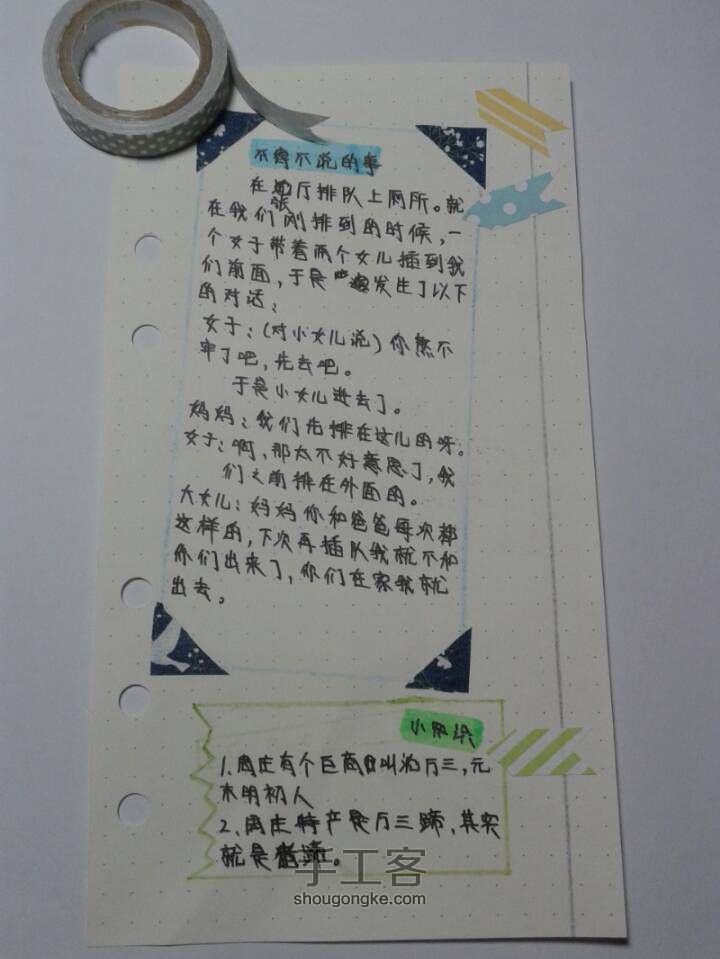 不得不说的事
在张厅排队上厕所。就
在我们刚排到的时候,一
个女子带着两个女儿插到我
们前面,于是发生了以下
的对话:
女子:(对小女儿说)你熬不
牢了吧,先去吧。
于是小女儿进去了。
妈妈:我们先排在这儿的呀。
女子:啊,那太不好意思了,我
们之前排在外面的。
大女儿:妈妈你和爸爸每次都
这样的,下次再插队我就不和
你们出来了,你们在家我就
出去。
小知识
1.周庄有个巨商叫沈万三,元
末明初人
2.周庄特产是万三蹄,其实
就是蹄。
手工客
shougongke.com